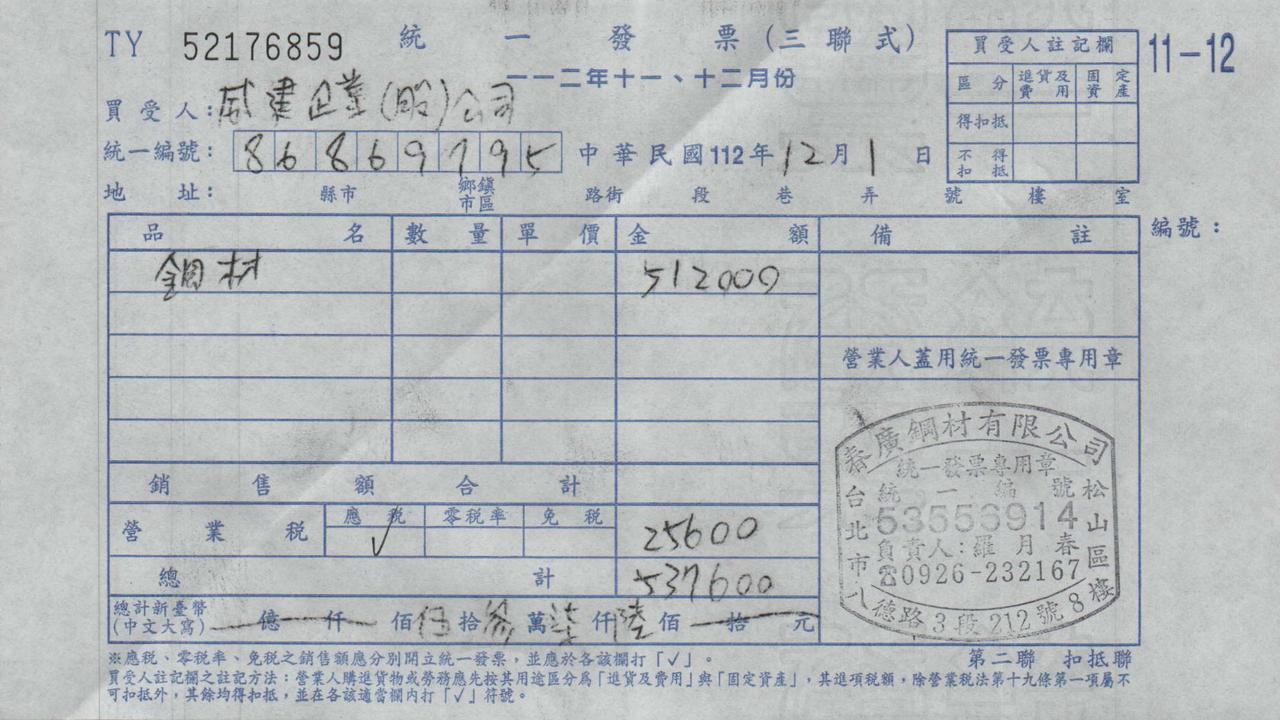 TY 52176859 統一發票(三聯式)
一一二年十一、十二月份
11-12
買受人註記欄
區分 進貨及費用 固定資產
得扣抵
不得扣抵
買受人:威建企業(股)公司
統一編號:86869795 中華民國112年12月1日
地址: 縣市 鄉鎮市區 路街 段 巷 弄 號 樓 室
編號:
品名 數量 單價 金額 備註
鋼材 512000
營業人蓋用統一發票專用章
銷售額合計
營業稅 應稅 零稅率 免稅 25600
✓
總計 537600
總計新臺幣(中文大寫) 億 仟 佰伍拾參萬柒仟陸佰 拾 元
春廣鋼材有限公司
統一發票專用章
統一編號
53556914
負責人:羅月春
☎0926-232167
台北市松山區八德路3段212號8樓
※應稅、零稅率、免稅之銷售額應分別開立統一發票,並應於各該欄打「✓」。
第二聯 扣抵聯
買受人註記欄之註記方法:營業人購進貨物或勞務應先按其用途區分為「進貨及費用」與「固定資產」,其進項稅額,除營業稅法第十九條第一項屬不
可扣抵外,其餘均得扣抵,並在各該適當欄內打「✓」符號。